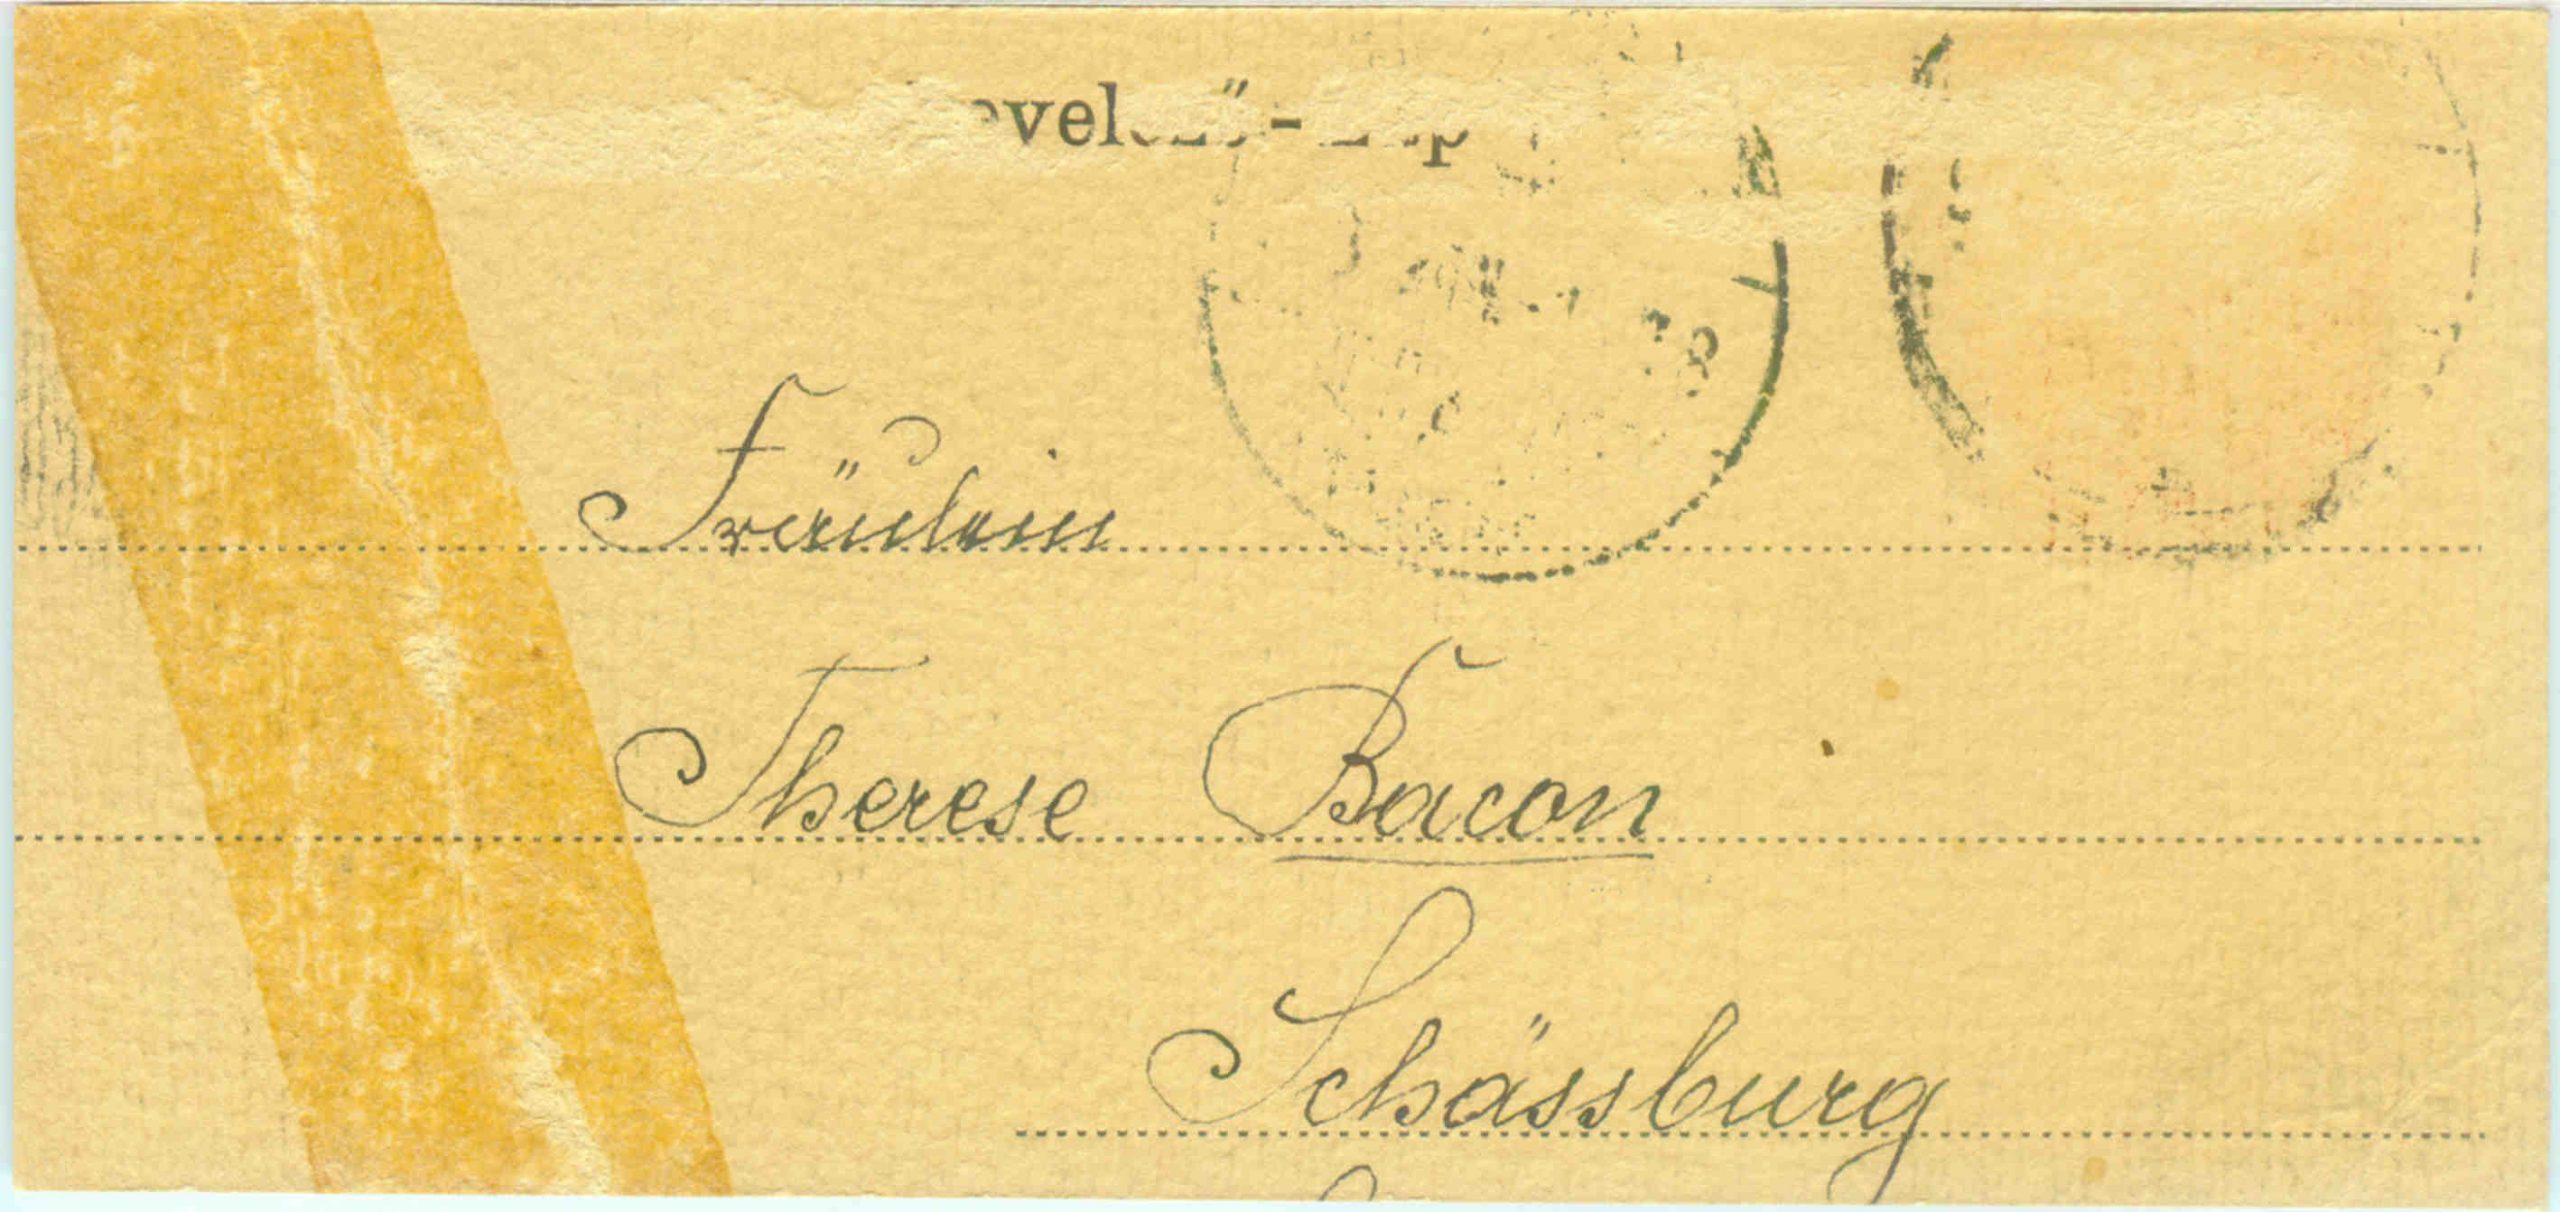 Fräulein
Therese Bacon
Schässburg